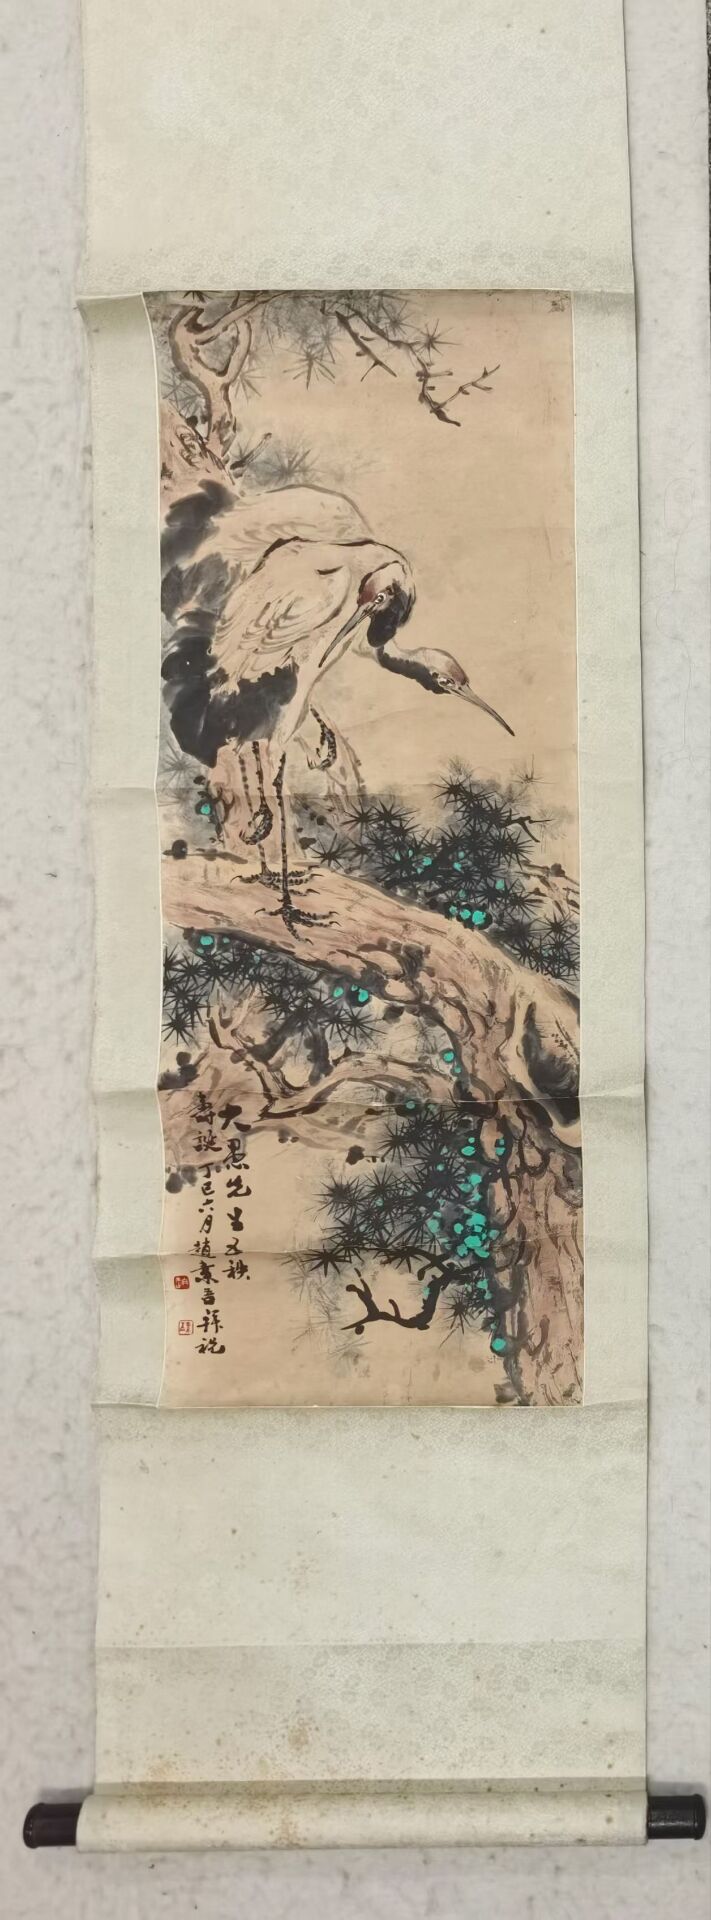 大愚先生五秩
壽誕丁巳六月趙素吾拜祝